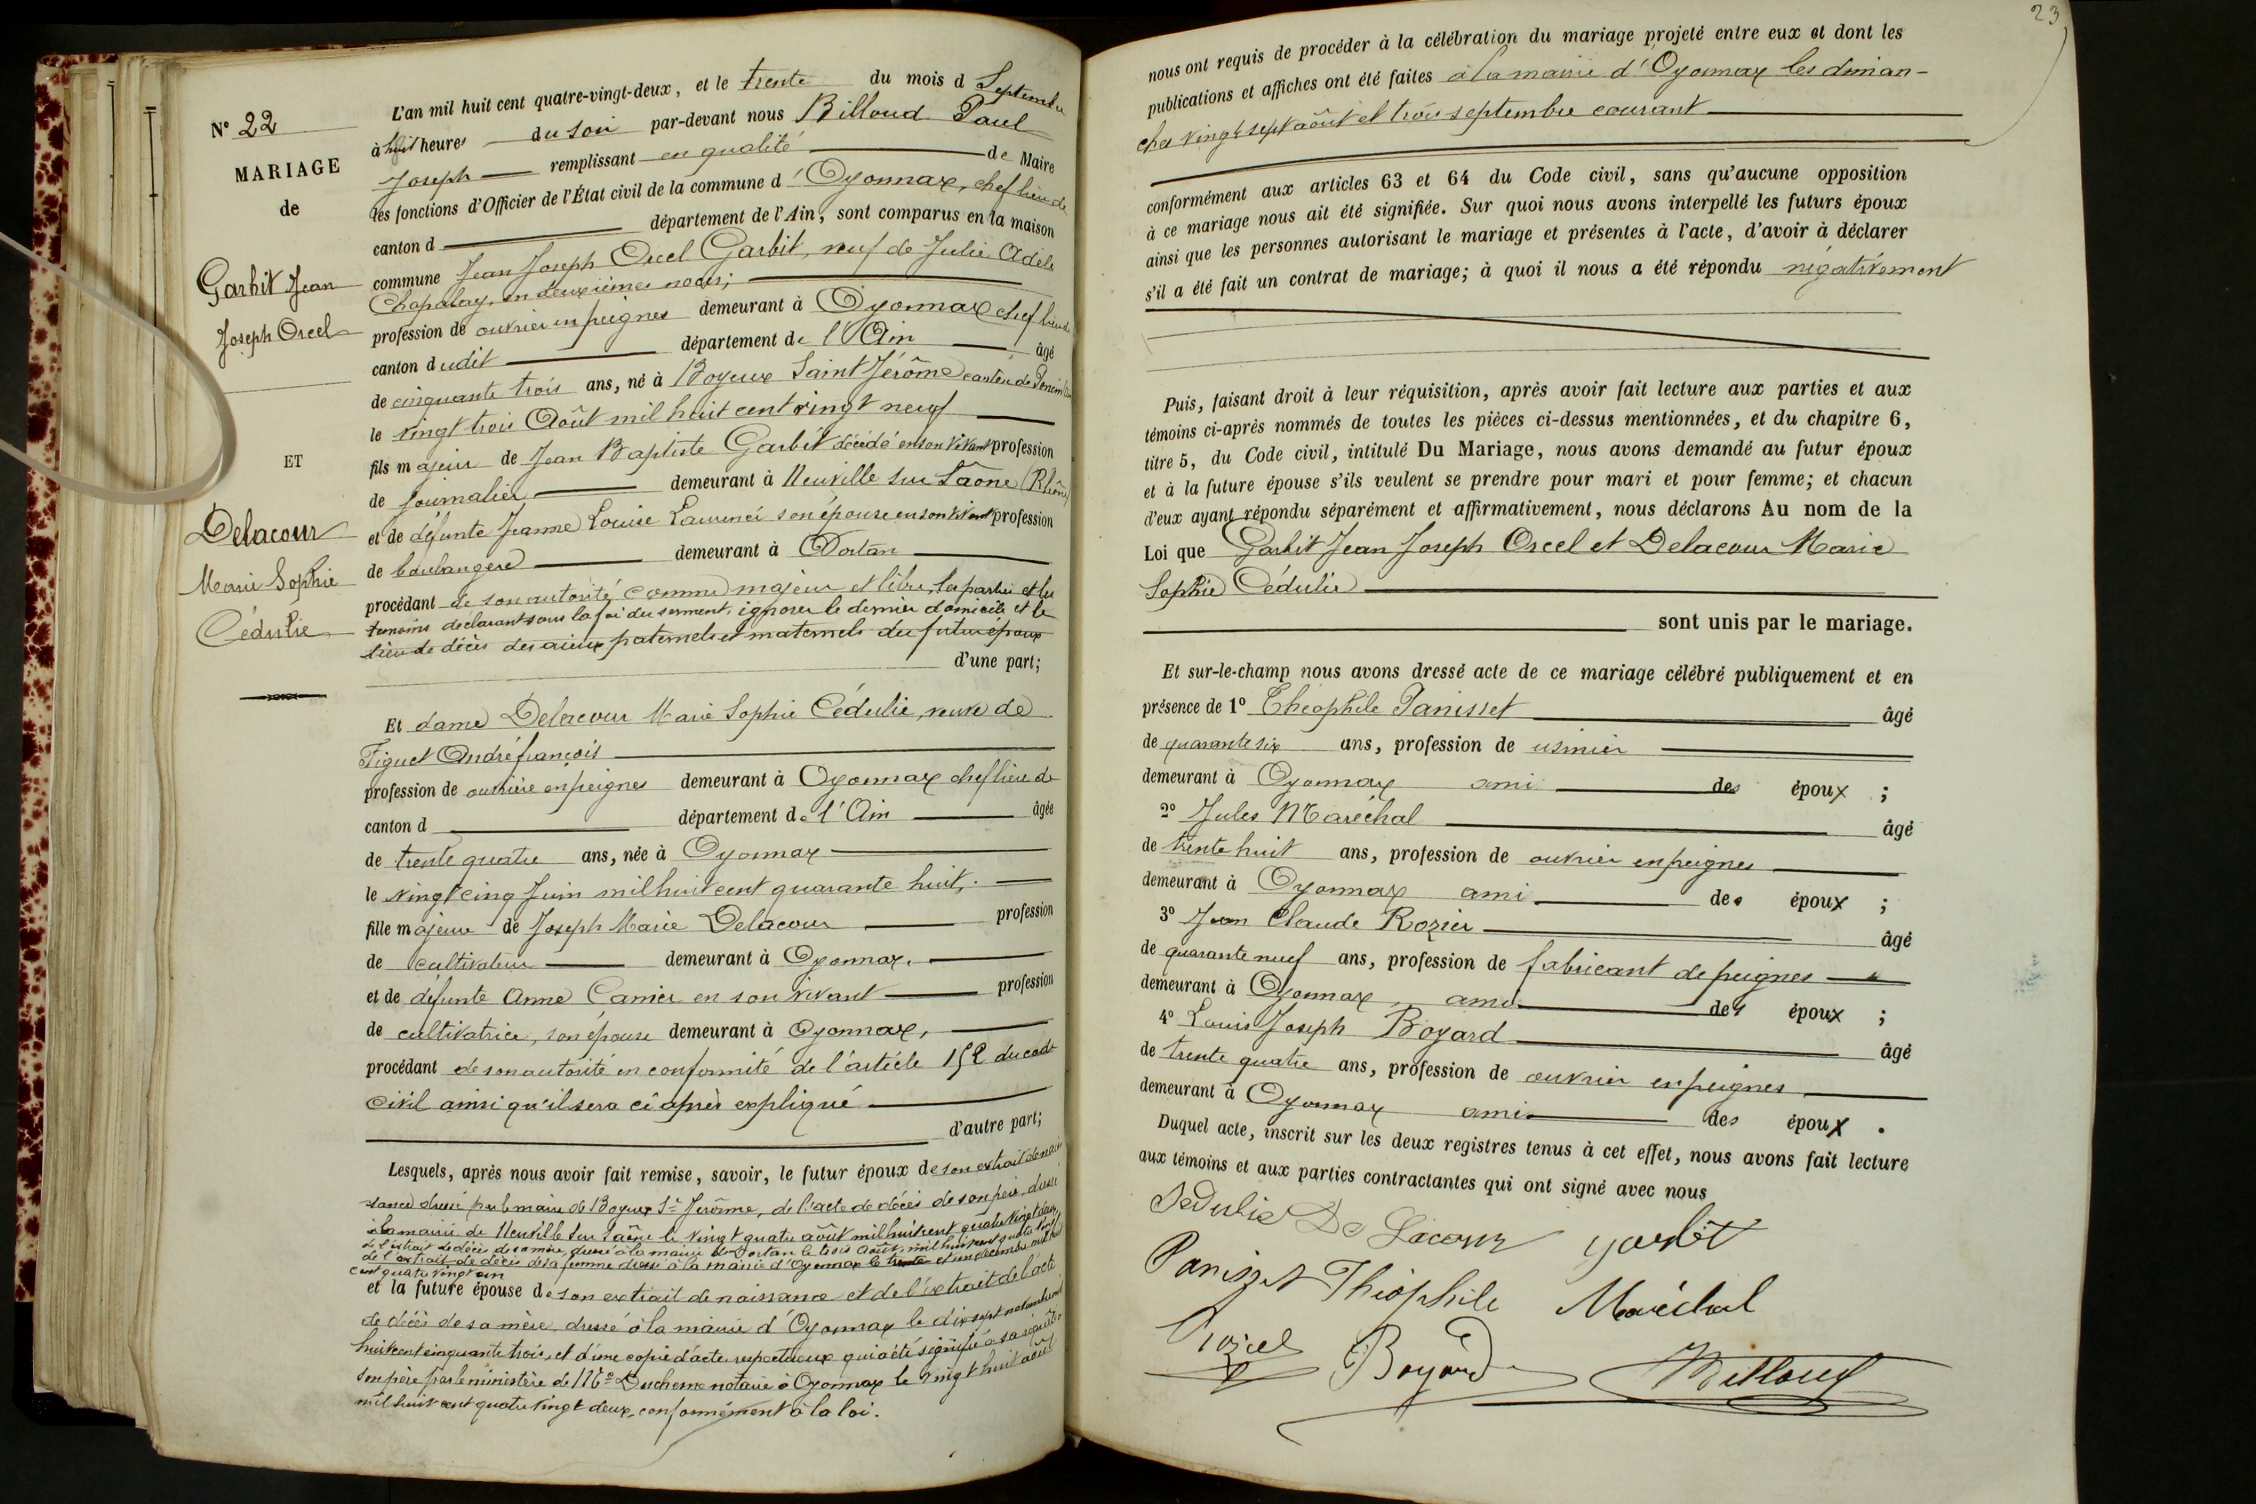 N° 22
MARIAGE
de
Garbit Jean
Joseph Orcel
ET
Delacour
Marie Sophie
Cédulie
L'an mil huit cent quatre-vingt-deux, et le trente du mois d Septembre
à huit heures du soir par-devant nous Billoud Paul
Joseph remplissant en qualité de Maire
les fonctions d'Officier de l'État civil de la commune d'Oyonnax, chef lieu de
canton d département de l'Ain, sont comparus en la maison
commune Jean Joseph Orcel Garbit, veuf de Julie Adèle
Chapalay, en deuxièmes noces;
profession de ouvrier en peignes demeurant à Oyonnax chef lieu de
canton dudit département de l'Ain âgé
de cinquante trois ans, né à Boyeux Saint Jérôme canton de Poncin
le vingt trois Août mil huit cent vingt neuf
fils majeur de Jean Baptiste Garbit décédé en son vivant profession
de journalier demeurant à Neuville sur Saône (Rhône)
et de défunte Jeanne Louise son épouse en son vivant profession
de boulangère demeurant à Dortan
procédant de son autorité comme majeur et libre, les parties et les
témoins déclarant sous la foi du serment, ignorer le dernier domicile et le
lieu de décès des aïeux paternels et maternels du futur époux
d'une part;
Et dame Delacour Marie Sophie Cédulie, veuve de
Figuet André françois
profession de ouvrière en peignes demeurant à Oyonnax chef lieu de
canton d département de l'Ain âgée
de trente quatre ans, née à Oyonnax
le vingt cinq Juin mil huit cent quarante huit,
fille majeure de Joseph Marie Delacour profession
de cultivateur demeurant à Oyonnax,
et de défunte Anne Carrier en son vivant profession
de cultivatrice, son épouse demeurant à Oyonnax,
procédant de son autorité en conformité de l'article 152 du code
civil ainsi qu'il sera ci après expliqué
d'autre part;
Lesquels, après nous avoir fait remise, savoir, le futur époux de son extrait de nais
sance dressé par le maire de Boyeux St Jérôme, de l'acte de décès de son père, dressé
à la mairie de Neuville sur Saône le vingt quatre août mil huit cent quatre vingt deux,
de l'extrait de décès de sa mère, dressé à la mairie de Dortan le trois août mil huit cent quatre vingt
de l'extrait de décès de sa femme dressé à la mairie d'Oyonnax le trente et un décembre mil huit
cent quatre vingt un
et la future épouse de son extrait de naissance et de l'extrait de l'acte
de décès de sa mère, dressé à la mairie d'Oyonnax le dix sept novembre mil
huit cent cinquante trois, et d'une copie d'acte respectueux qui a été signifié à sa réquisition
son père par le ministère de Me Duchesne notaire à Oyonnax le vingt huit août
mil huit cent quatre vingt deux, conformément à la loi.
23
nous ont requis de procéder à la célébration du mariage projeté entre eux et dont les
publications et affiches ont été faites à la mairie d'Oyonnax les diman-
ches vingt sept août et trois septembre courant
conformément aux articles 63 et 64 du Code civil, sans qu'aucune opposition
à ce mariage nous ait été signifiée. Sur quoi nous avons interpellé les futurs époux
ainsi que les personnes autorisant le mariage et présentes à l'acte, d'avoir à déclarer
s'il a été fait un contrat de mariage; à quoi il nous a été répondu négativement
Puis, faisant droit à leur réquisition, après avoir fait lecture aux parties et aux
témoins ci-après nommés de toutes les pièces ci-dessus mentionnées, et du chapitre 6,
titre 5, du Code civil, intitulé Du Mariage, nous avons demandé au futur époux
et à la future épouse s'ils veulent se prendre pour mari et pour femme; et chacun
d'eux ayant répondu séparément et affirmativement, nous déclarons Au nom de la
Loi que Garbit Jean Joseph Orcel et Delacour Marie
Sophie Cédulie
sont unis par le mariage.
Et sur-le-champ nous avons dressé acte de ce mariage célébré publiquement et en
présence de 1° Théophile Panisset âgé
de quarante six ans, profession de usinier
demeurant à Oyonnax ami des époux ;
2° Jules Maréchal âgé
de trente huit ans, profession de ouvrier en peignes
demeurant à Oyonnax ami des époux ;
3° Jean Claude Rozier âgé
de quarante neuf ans, profession de fabricant de peignes
demeurant à Oyonnax, ami des époux ;
4° Louis Joseph Boyard âgé
de trente quatre ans, profession de ouvrier en peignes
demeurant à Oyonnax ami des époux .
Duquel acte, inscrit sur les deux registres tenus à cet effet, nous avons fait lecture
aux témoins et aux parties contractantes qui ont signé avec nous
Sedulie De Lacour garbit
Panisset Théophile Maréchal
Rozier Boyard Billoud